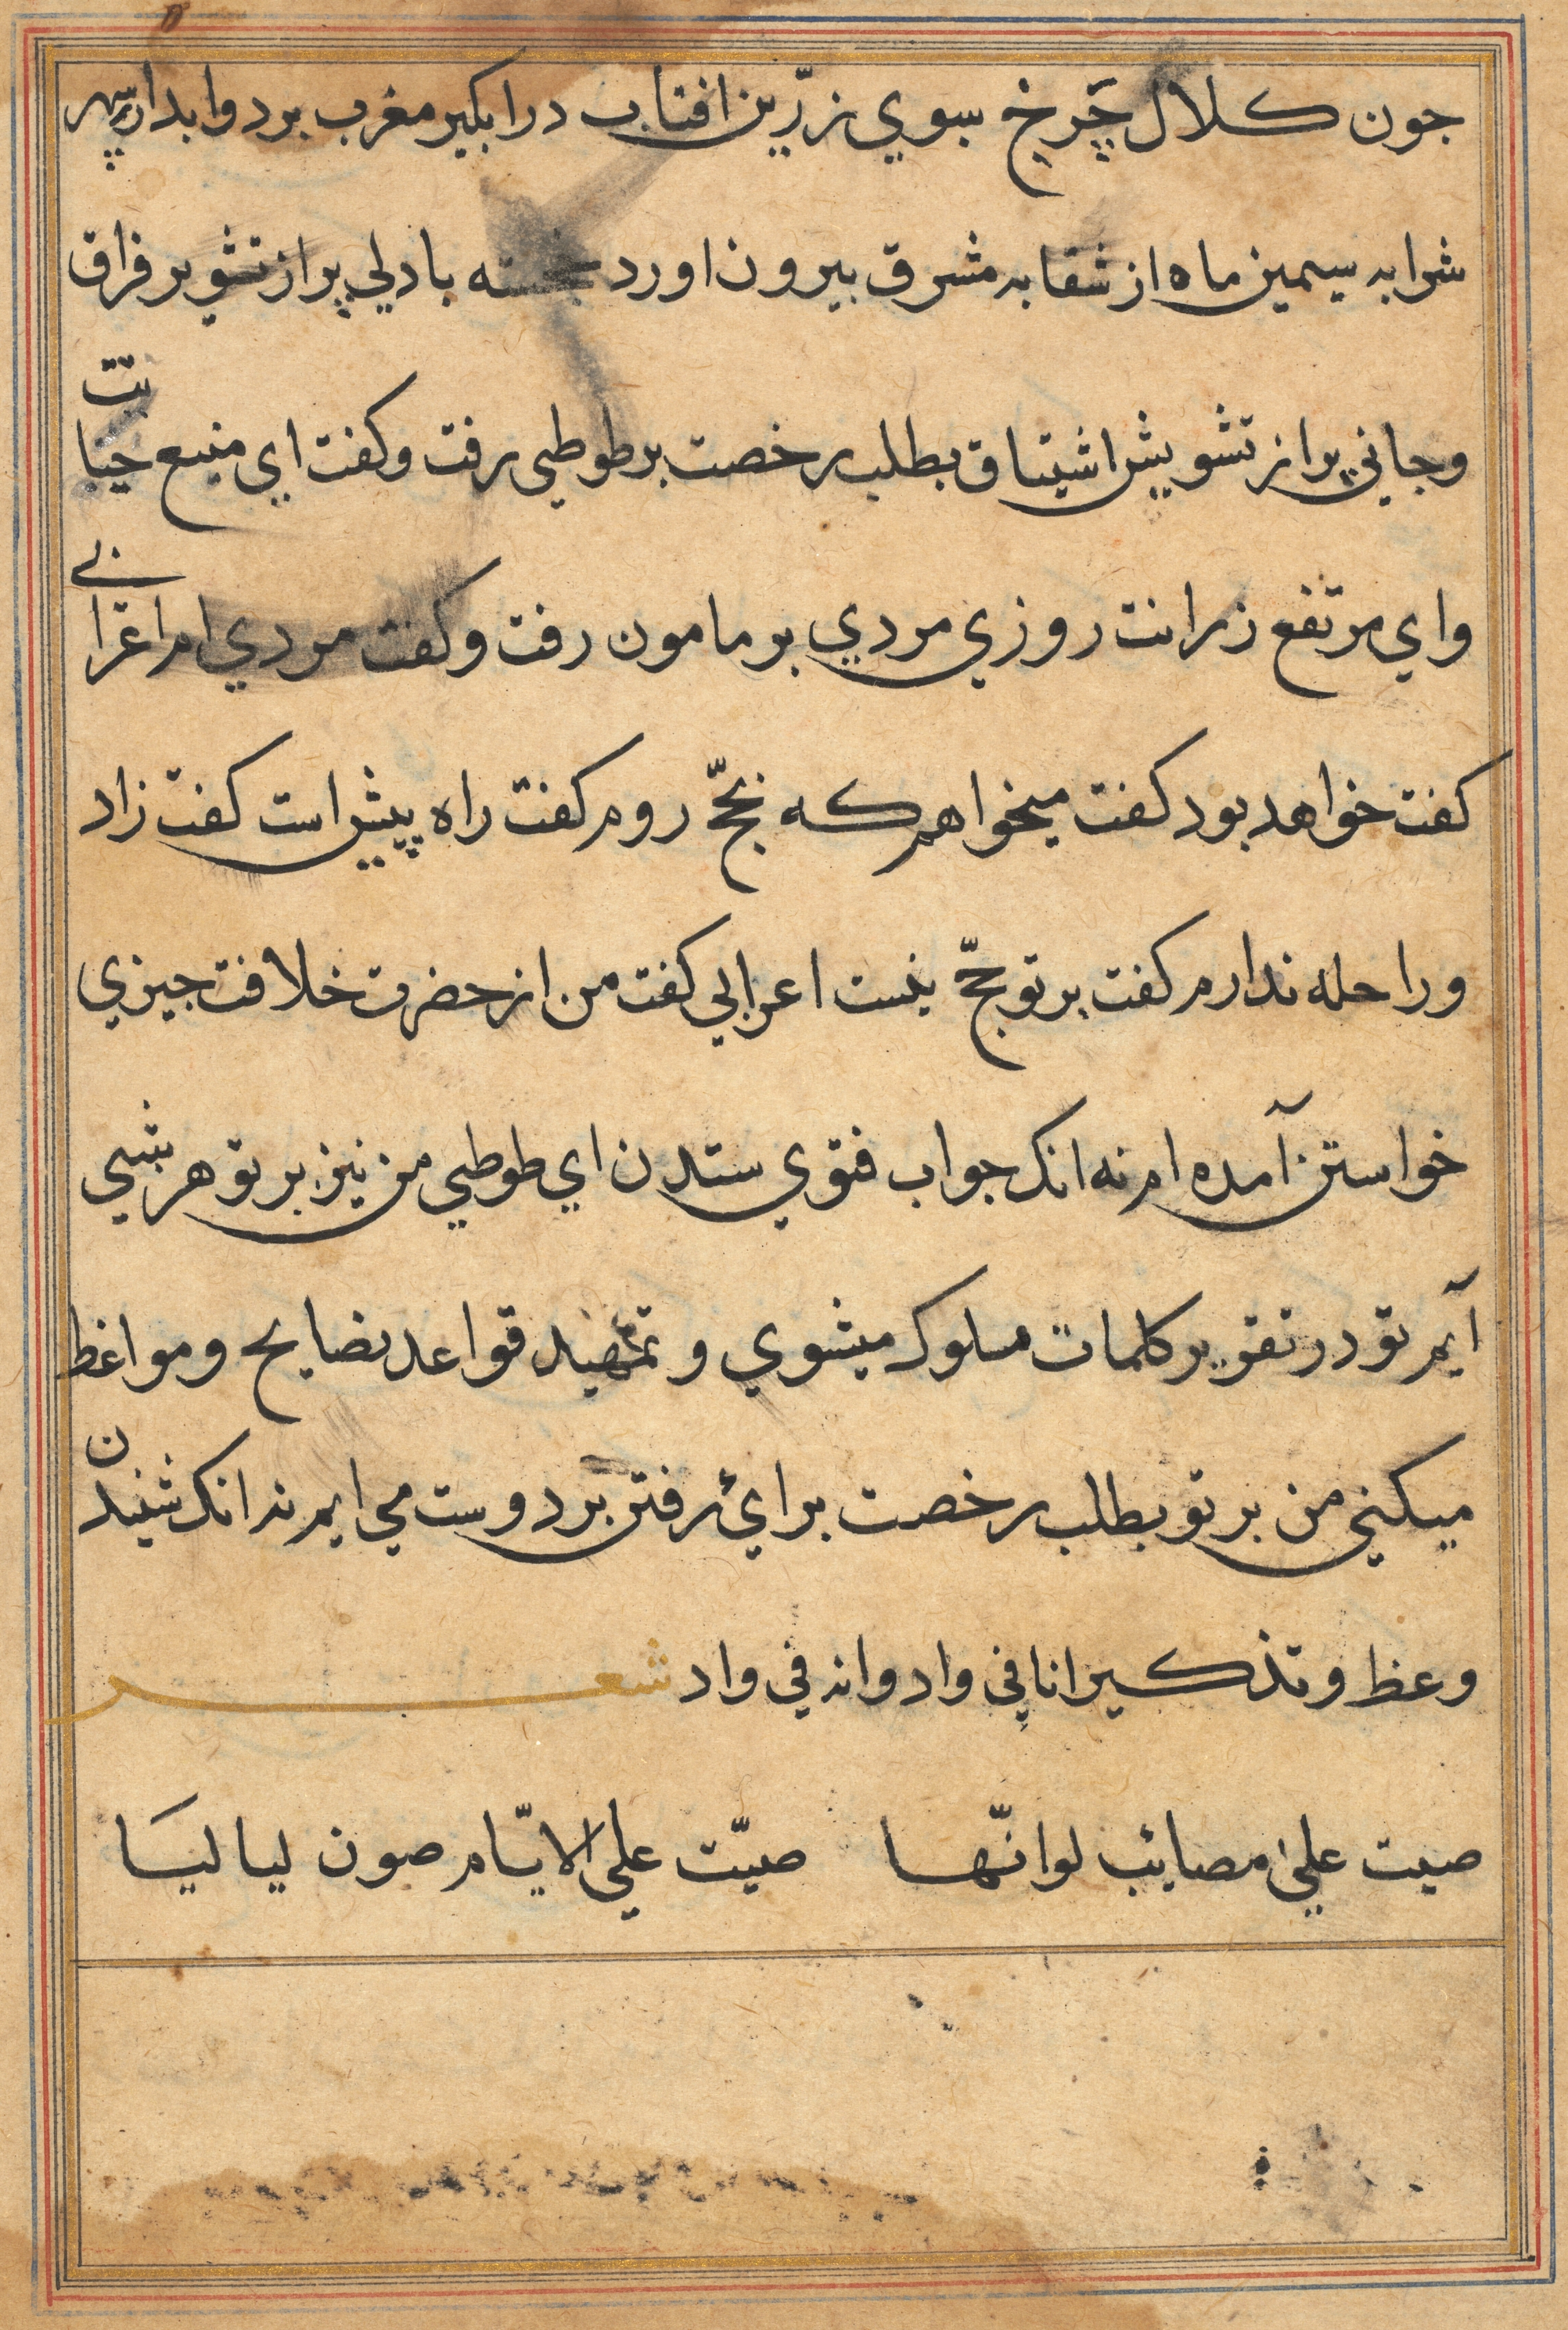 جون کلال چَرخ سبوي زرّين افتاب در ابكير مغرب برد وابدار سپهر
شرابه سيمين ماه از شقابه مشرق بيرون اورد نخشبه با دلي پر از تشوير فراق
وجاني پر از تشويش اشتياق بطلب رخصت بر طوطي رفت وكفت اي منبع حيانت
واي مرتفع زرانت روزي مردي بر مامون رفت وكفت مردي ام اعرابي
كفت خواهد بود كفت ميخواهم كه بحجّ روم كفت راه پيش است كفت زاد
وراحله ندارم كفت بر تو حجّ نيست اعرابي كفت من از حضرت خلافت جيزي
خواستن آمده ام نه انك جواب فتوي ستدن اي طوطي من نيز بر تو هر شبي
آيم تو در تقرير كلمات ملوك ميشوي و تمهيد قواعد نصايح ومواعظ
ميكني من بر تو بطلب رخصت براي رفتن بر دوست مي ايم نه انك شنيدن
وعظ وتذكير انا في واد وانه في واد شعر
صبت علي مصائب لو انّها صبّت علي الايّام صرن لياليَا